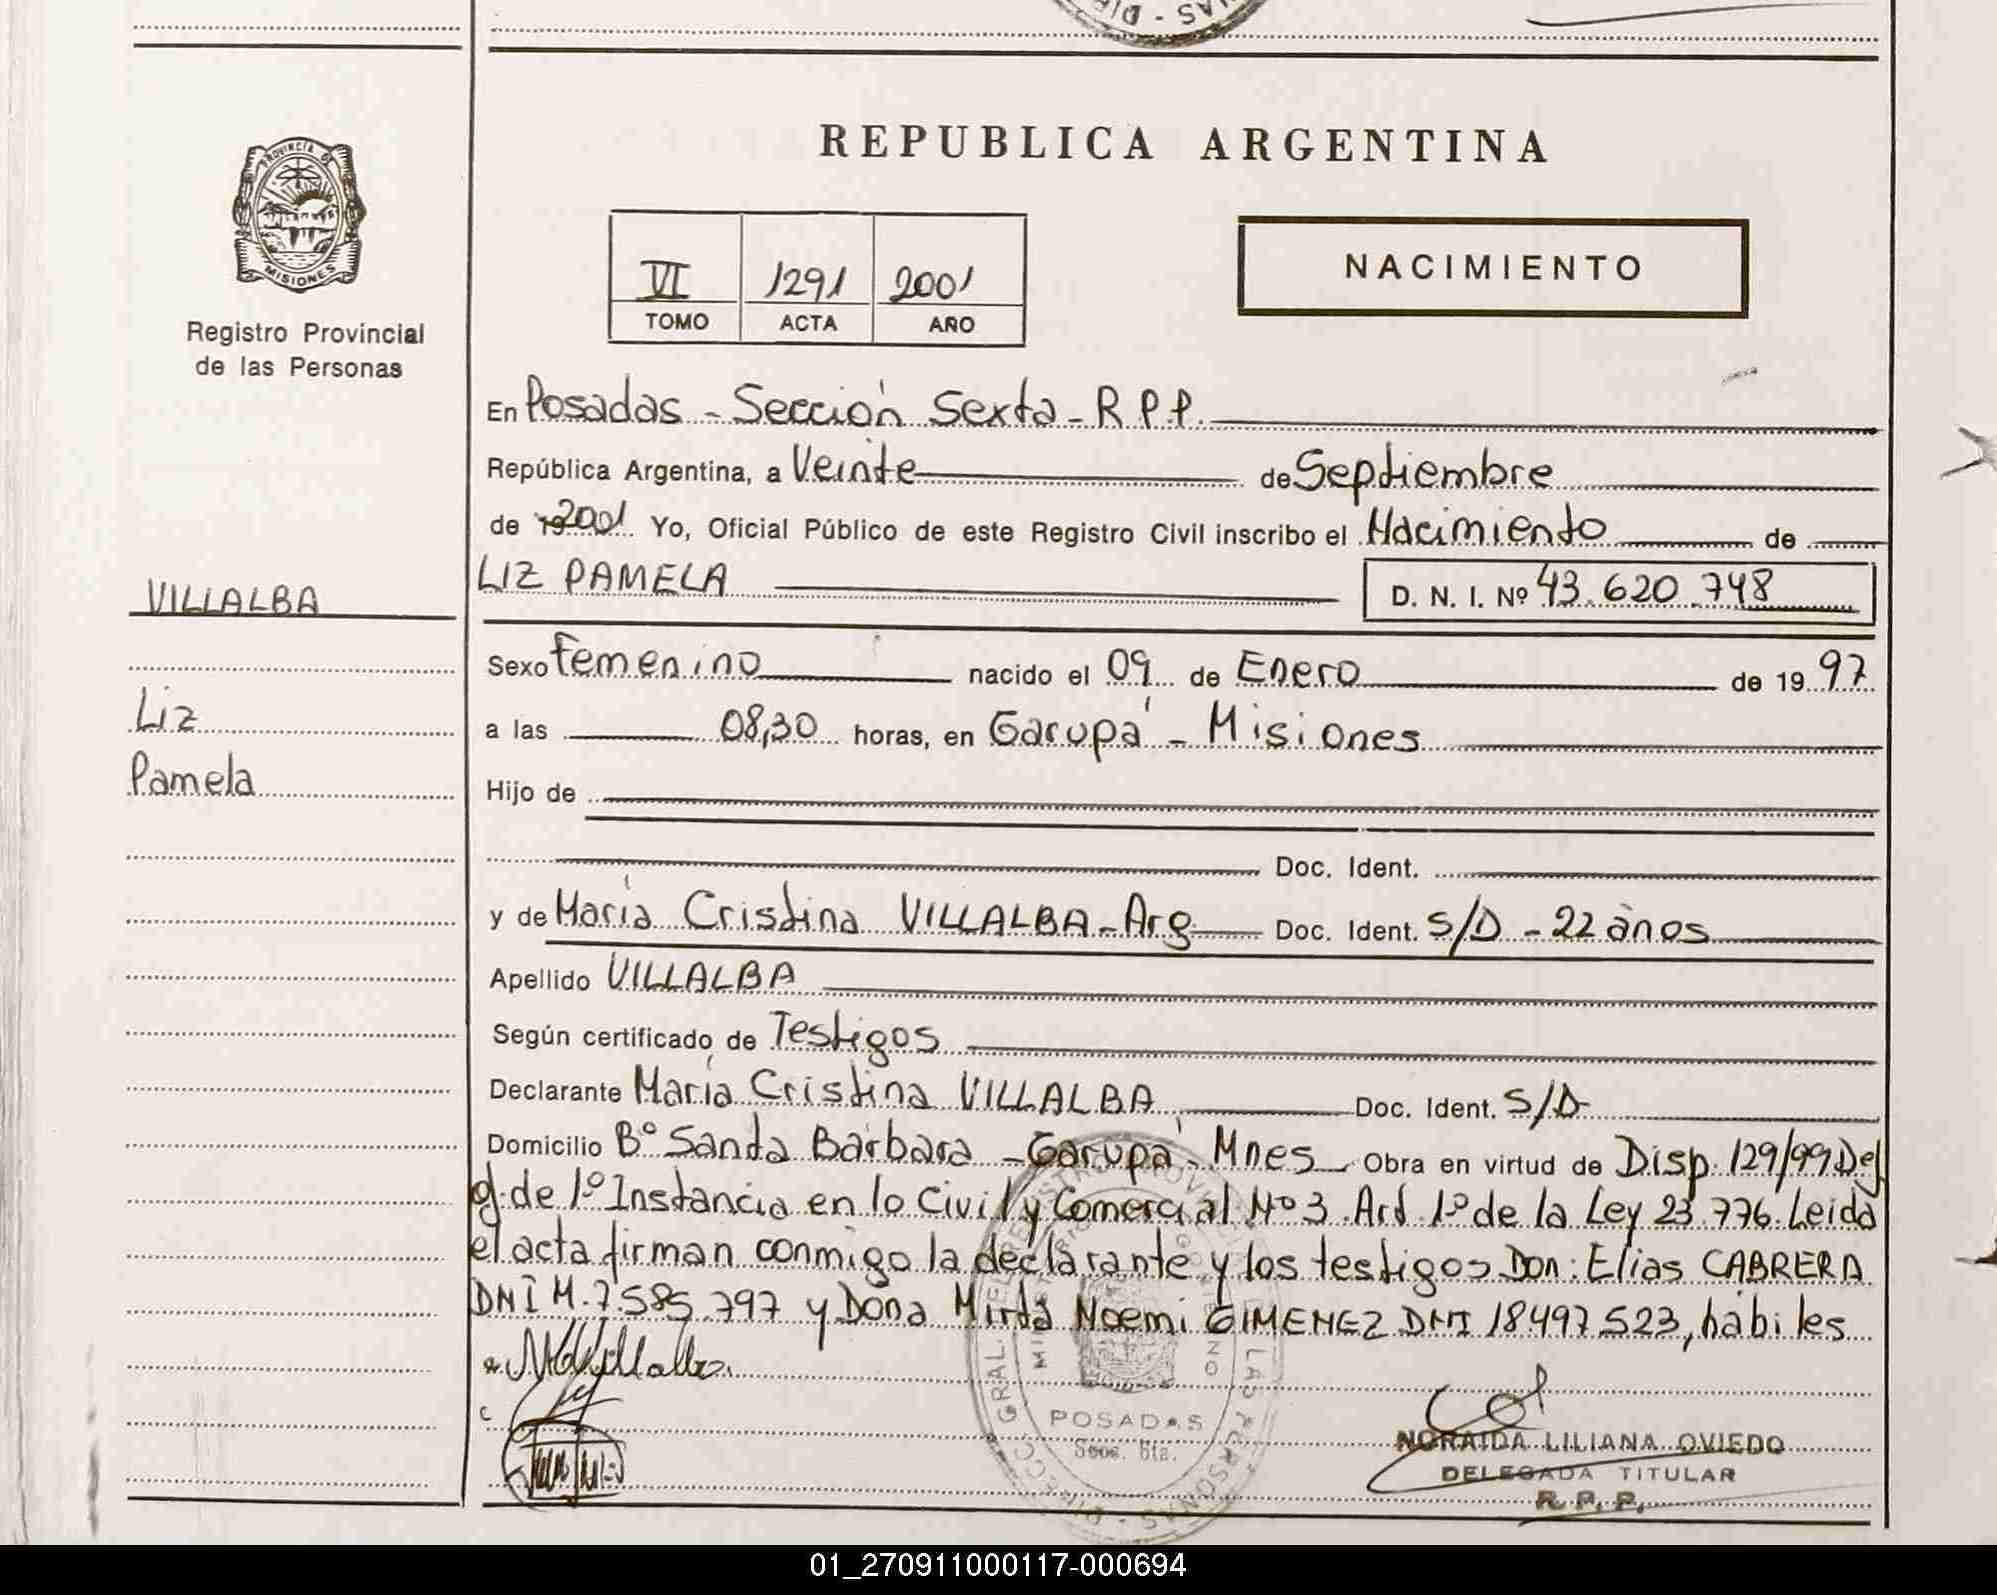 REPUBLICA ARGENTINA
PROVINCIA DE
MISIONES
Registro Provincial
de las Personas
VI 1291 2001
TOMO ACTA AÑO
NACIMIENTO
En Posadas - Sección Sexta - R.P.P.
República Argentina, a Veinte de Septiembre
de 2001 Yo, Oficial Público de este Registro Civil inscribo el Nacimiento de
VILLALBA
LIZ PAMELA D. N. I. Nº 43.620.748
Sexo Femenino nacido el 09 de Enero de 1997
Liz
a las 08,30 horas, en Garupá - Misiones
Pamela
Hijo de
Doc. Ident.
y de María Cristina VILLALBA - Arg Doc. Ident. S/D - 22 años
Apellido VILLALBA
Según certificado de Testigos
Declarante María Cristina VILLALBA Doc. Ident. S/D
Domicilio Bº Santa Bárbara - Garupá - Mnes Obra en virtud de Disp. 129/99 Del
de 1º Instancia en lo Civil y Comercial Nº 3 Art 1º de la Ley 23.776. Leida
el acta firman conmigo la declarante y los testigos Don: Elias CABRERA
DNI M.7.585.797 y Doña Mirta Noemi GIMENEZ DNI 18497523, hábiles
POSADAS
Secc. 6ta.
NORAIDA LILIANA OVIEDO
DELEGADA TITULAR
R. P. P.
01_270911000117-000694